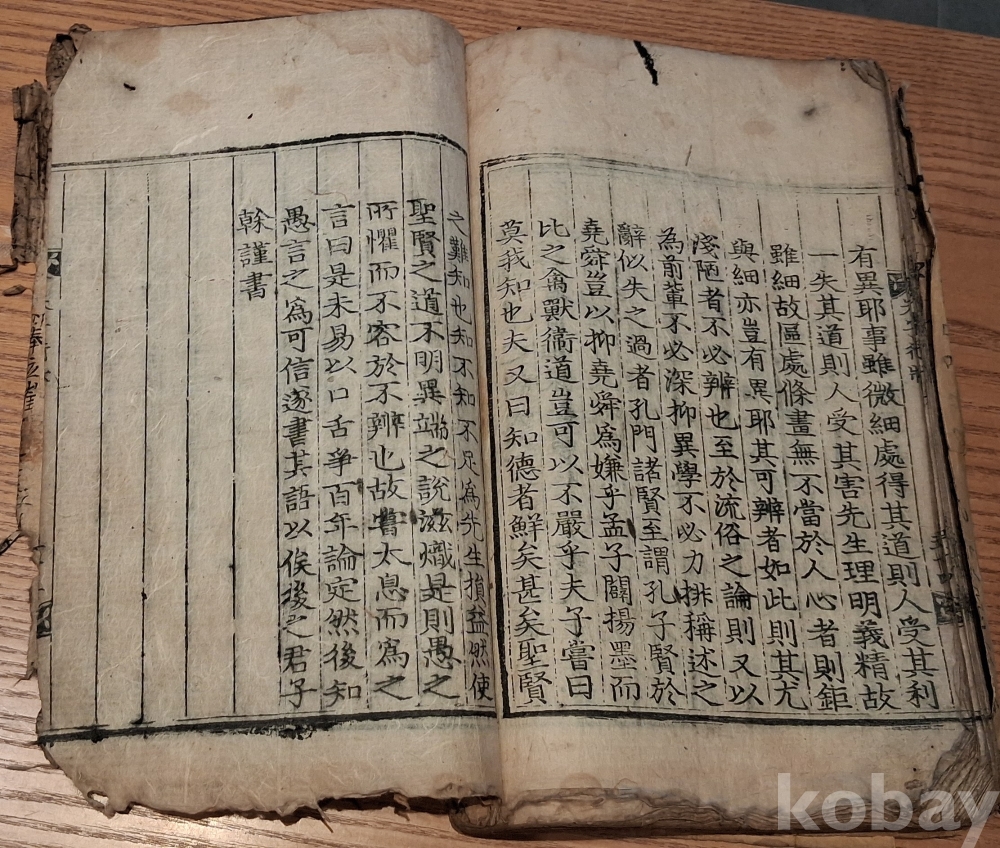 有異耶事雖微細處得其道則人受其利
一失其道則人受其害先生理明義精故
雖細故區處條畫無不當於人心者則鉅
與細亦豈有異耶其可辨者如此則其尤
淺陋者不必辨也至於流俗之論則又以
為前輩不必深抑異學不必力排稱述之
辭似失之過者孔門諸賢至謂孔子賢於
堯舜豈以抑堯舜爲嫌乎孟子闢揚墨而
比之禽獸衞道豈可以不嚴乎夫子嘗曰
莫我知也夫又曰知德者鮮矣甚矣聖賢
之難知也知不知不足爲先生損益然使
聖賢之道不明異端之說滋熾是則愚之
所懼而不容於不辨也故嘗太息而爲之
言曰是未易以口舌爭百年論定然後知
愚言之爲可信遂書其語以俟後之君子
榦謹書
kobay